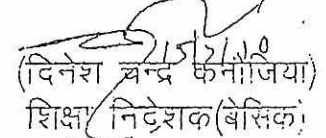 (दिनेश चन्द्र कनौजिया)
शिक्षा निदेशक(बेसिक)